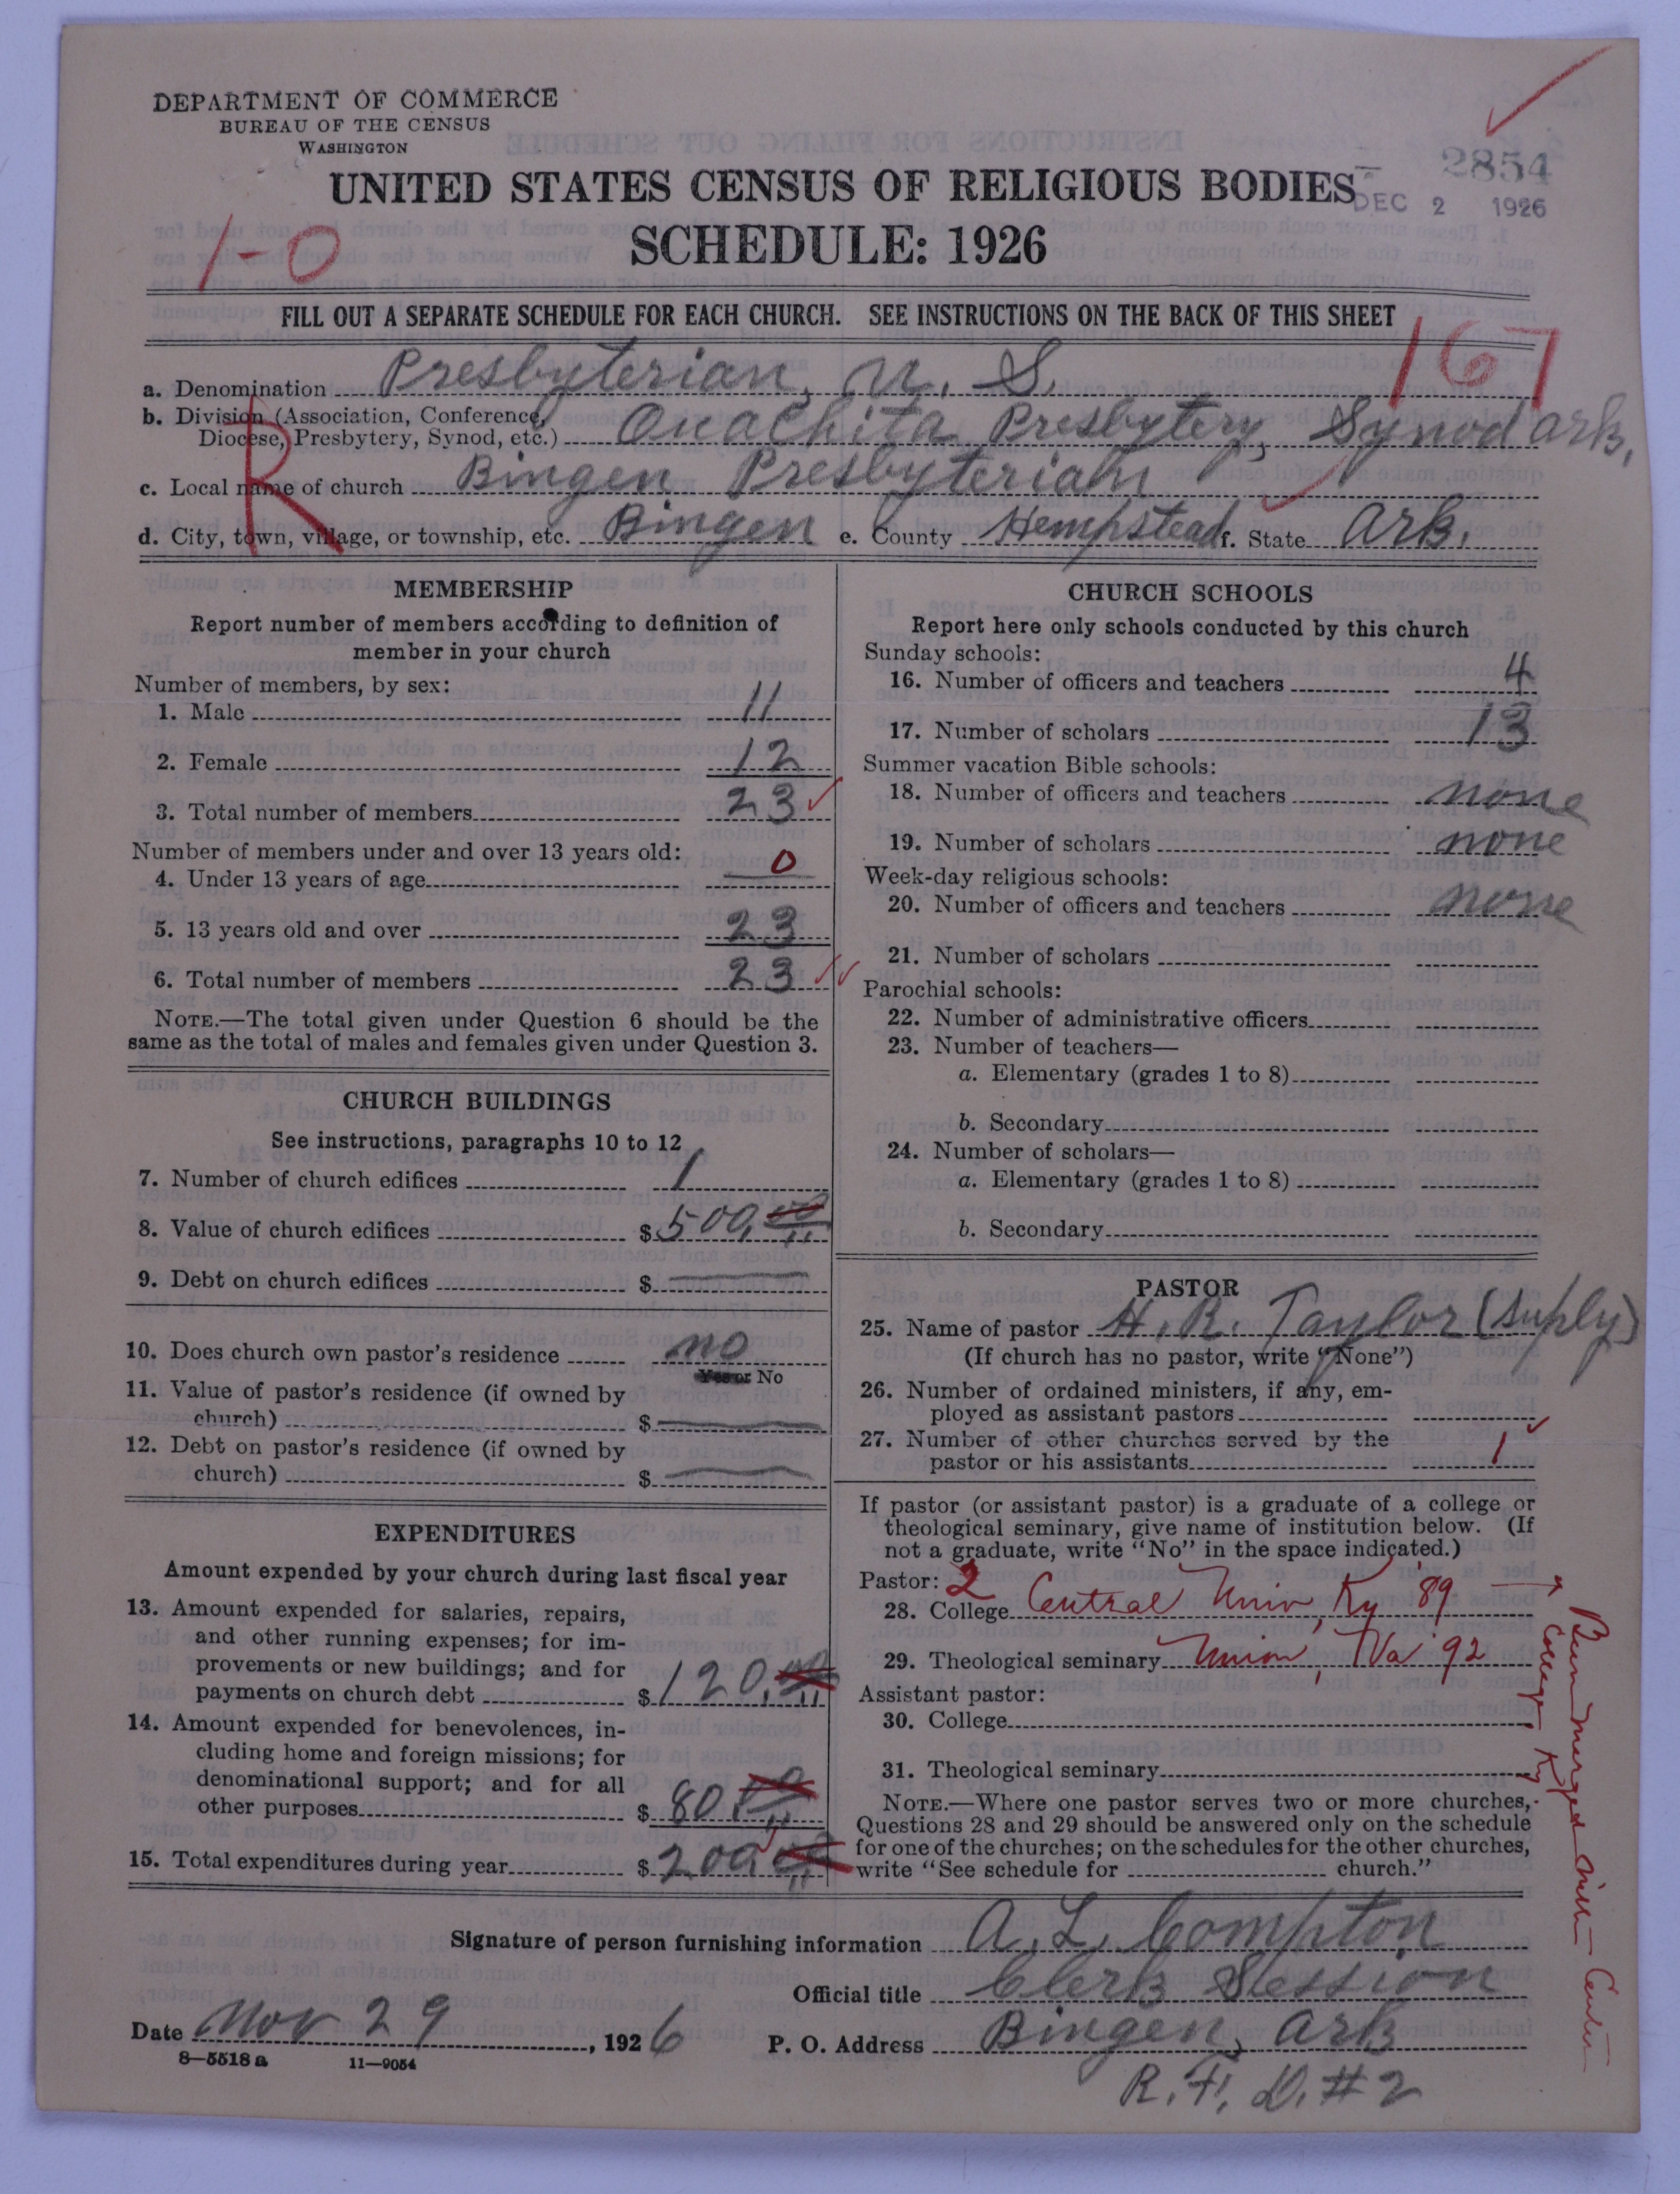 DEPARTMENT OF COMMERCE
BUREAU OF THE CENSUS
WASHINGTON
2854
DEC 2 1926
UNITED STATES CENSUS OF RELIGIOUS BODIES
SCHEDULE: 1926
1-0
FILL OUT A SEPARATE SCHEDULE FOR EACH CHURCH. SEE INSTRUCTIONS ON THE BACK OF THIS SHEET
167
a. Denomination Presbyterian, U. S.
b. Division (Association, Conference, Diocese, Presbytery, Synod, etc.) Ouachita Presbytery, Synod Ark.
R
c. Local name of church Bingen Presbyterian
d. City, town, village, or township, etc. Bingen e. County Hempstead f. State Ark.
MEMBERSHIP
Report number of members according to definition of
member in your church
Number of members, by sex:
1. Male 11
2. Female 12
3. Total number of members 23
Number of members under and over 13 years old:
4. Under 13 years of age 0
5. 13 years old and over 23
6. Total number of members 23
NOTE.—The total given under Question 6 should be the
same as the total of males and females given under Question 3.
CHURCH BUILDINGS
See instructions, paragraphs 10 to 12
7. Number of church edifices 1
8. Value of church edifices $ 500.00
9. Debt on church edifices $
10. Does church own pastor's residence no
Yes or No
11. Value of pastor's residence (if owned by
church) $
12. Debt on pastor's residence (if owned by
church) $
EXPENDITURES
Amount expended by your church during last fiscal year
13. Amount expended for salaries, repairs,
and other running expenses; for im-
provements or new buildings; and for
payments on church debt $ 120.00
14. Amount expended for benevolences, in-
cluding home and foreign missions; for
denominational support; and for all
other purposes $ 80.00
15. Total expenditures during year $ 200.00
CHURCH SCHOOLS
Report here only schools conducted by this church
Sunday schools:
16. Number of officers and teachers 4
17. Number of scholars 13
Summer vacation Bible schools:
18. Number of officers and teachers none
19. Number of scholars none
Week-day religious schools:
20. Number of officers and teachers none
21. Number of scholars
Parochial schools:
22. Number of administrative officers
23. Number of teachers—
a. Elementary (grades 1 to 8)
b. Secondary
24. Number of scholars—
a. Elementary (grades 1 to 8)
b. Secondary
PASTOR
25. Name of pastor H. R. Taylor (Suply)
(If church has no pastor, write "None")
26. Number of ordained ministers, if any, em-
ployed as assistant pastors
27. Number of other churches served by the
pastor or his assistants 1
If pastor (or assistant pastor) is a graduate of a college or
theological seminary, give name of institution below. (If
not a graduate, write "No" in the space indicated.)
Pastor: 2
28. College Central Univ, Ky '89
29. Theological seminary Union, Va '92
Assistant pastor:
30. College
31. Theological seminary
NOTE.—Where one pastor serves two or more churches,
Questions 28 and 29 should be answered only on the schedule
for one of the churches; on the schedules for the other churches,
write "See schedule for church."
Been merged with Center
College Ky
Signature of person furnishing information A. L. Compton
Official title Clerk Session
Date Nov 29, 1926 P. O. Address Bingen, Ark
R. F. D. #2
8—5518 a 11—9054